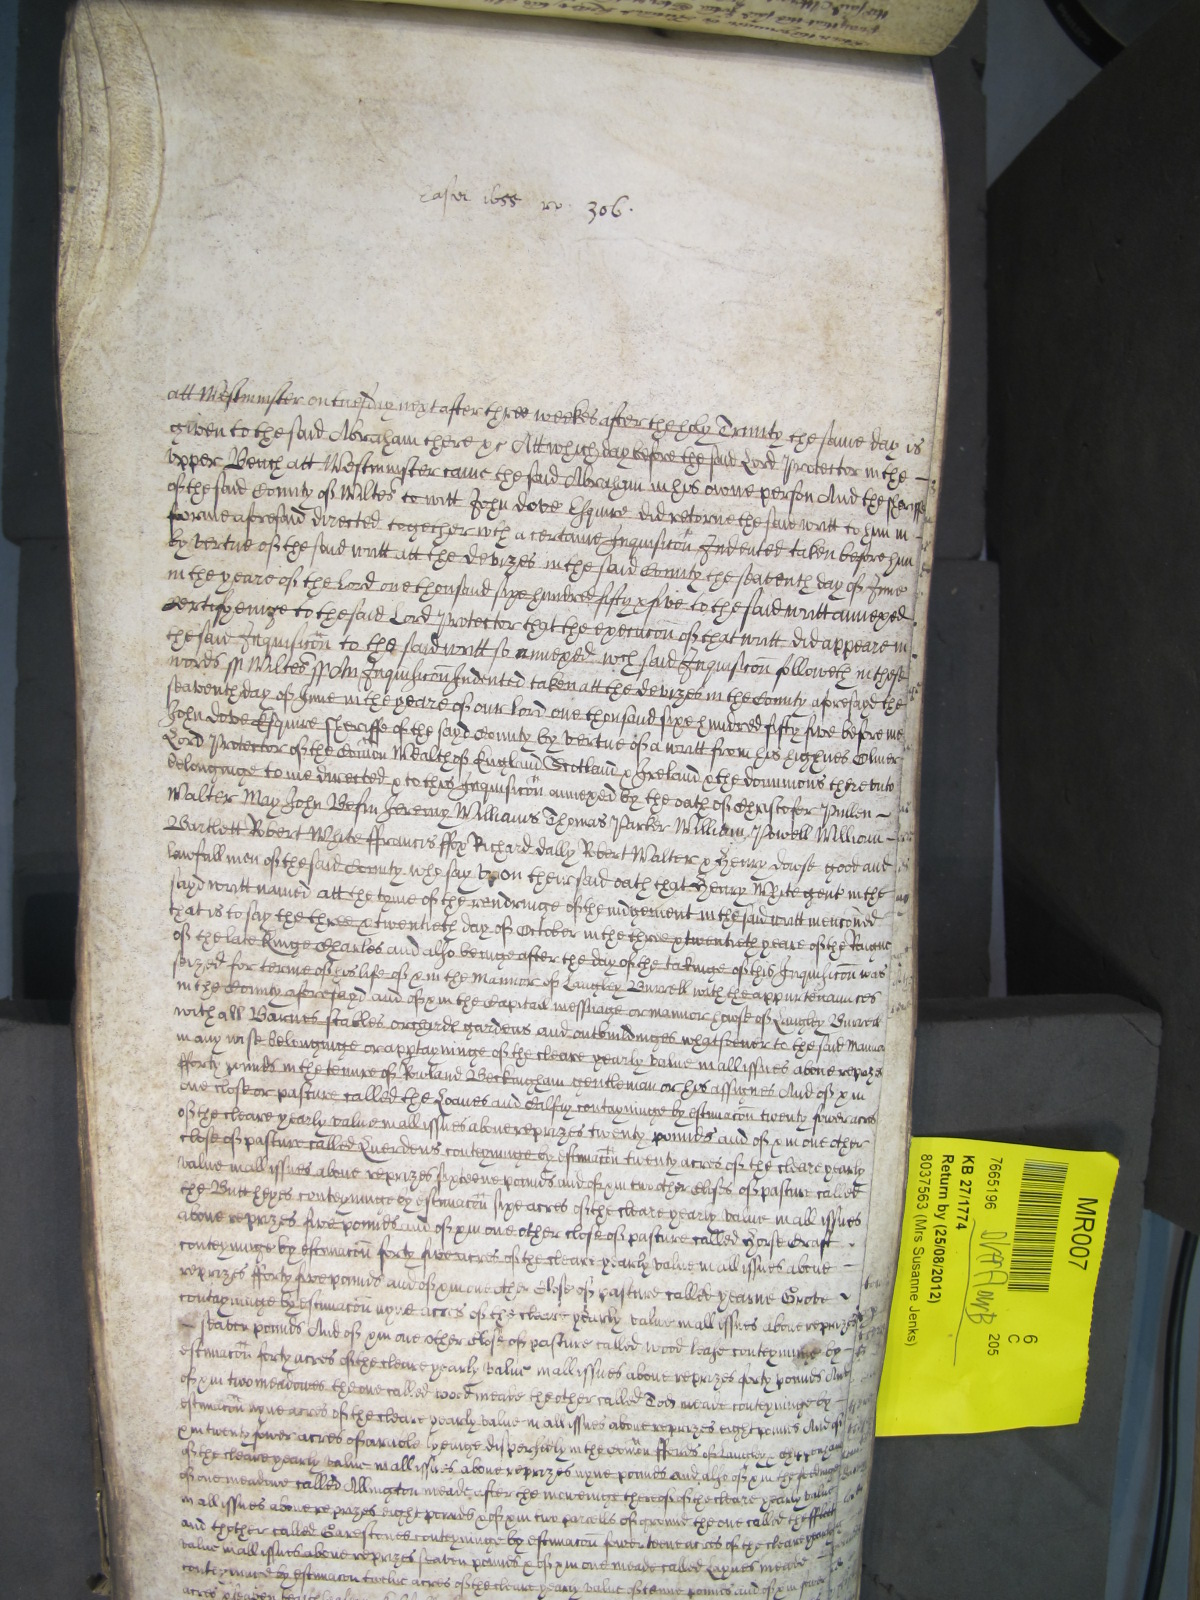 Easter 1655 ro. 306.
att Westminster on tuesday next after three weekes after the holy Trinity the same day is
given to the said Abraham there &c Att which day before the said Lord Protector in the
upper Bench att Westminster came the said Abraham in his owne person And the Sheriffe
of the said County of Wiltes to witt John Dove Esquire did retorne the said writt to him in
forme aforesaid directed together with a certaine Inquisicōn Indented taken before him
by vertue of the said writt att the devizes in the said County the seaventh day of June
in the yeare of the Lord one thousand sixe hundred fifty & five to the said writt annexed
certifyeinge to the said Lord Protector that the execucōn of that writt did appeare in
the said Inquisicōn to the said writt so annexed wch said Inquisicōn followeth in these
words ss Wiltes ss An Inquisicōn Indented taken att the devizes in the County aforesayd the
seaventh day of June in the yeare of our Lord one thousand sixe hundred fifty five before me
John Dove Esquire Sheriffe of the sayd County by vertue of a writt from his highnes Oliver
Lord Protector of the Comōn Wealth of England Scotland & Ireland & the dominions thereunto
belonginge to me directed & to this Inquisicōn annexed by the oath of Christofer
Walter May John Jeremy Williams Thomas Parker William Powell William
Bartlett Robert White ffrancis ffox Richard dally Robert Walter & Henry dowse good and
lawfull men of the said County who say upon their said oath that Henry Wyte gent in the
sayd writt named att the tyme of the rendringe of the iudgement in the said writt mencōned
that is to say the three & twentieth day of October in the three & twentieth yeare of the Raigne
of the late Kinge Charles and also beinge after the day of the takinge of this Inquisicōn was
seized for terme of his life of & in the Mannor of Langley Burrell with the appurtenaunces
in the County aforesayd and of & in the Capitall messuage or mannor house of Langley Burrell
with all Barnes stables orchards gardens and outbuildinges whatsoever to the said Mannor
in any wise belonginge or apptayninge of the cleare yearly value in all issues above reprizes
fforty pounds in the tenure of Rowland Beckingham gentleman or his assignes And of & in
one close or pasture called the Loanes and conteyninge by estimacōn twenty fower acres
of the cleare yearly value in all issues above reprizes twenty pounds and of & in one other
close of pasture called conteyninge by estimacōn twenty acres of the cleare yearly
value in all issues above reprizes sixteene pounds and of & in two other closes of pasture called
the Buttheyes conteyninge by estimacōn sixe acres of the cleare yearly value in all issues
above reprizes five pounds and of & in one other close of pasture called Horse Craft
conteyninge by estimacōn forty five acres of the cleare yearly value in all issues above
reprizes fforty five pounds and of & in one other Close of pasture called yearne Grove
contayninge by estimacōn nyne acres of the cleare yearly value in all issues above reprizes
seaven pounds And of & in one other close of pasture called wood lease conteyninge by
estimacōn forty acres of the cleare yearly value in all issues above reprizes forty pounds And
of & in two meadowes the one called wood meade the other called meade conteyninge by
estimacōn nyne acres of the cleare yearly value in all issues above reprizes eight pounds And of
& in twenty fower acres of arrable lyeinge dispersedly in the comōn ffeilds of Langley &
of the cleare yearly value in all issues above reprizes nyne pounds and also of & in the
of one meadowe called Allington meade after the moweinge thereof of the cleare yearly value
in all issues above reprizes eight pounds & of & in two parcells of ground the one called the
and thother called Garestones conteyninge by estimacōn fowerteene acres of the cleare yearely
value in all issues above reprizes seaven pounds & of & in one meade called meade
conteyninge by estimacōn twelve acres of the cleare yearly value of tenne pounds and of & in fower
acres
MR007
6
C
7665196
205
KB 27/1774
Return by (25/08/2012)
8037563 (Mrs Susanne Jenks)